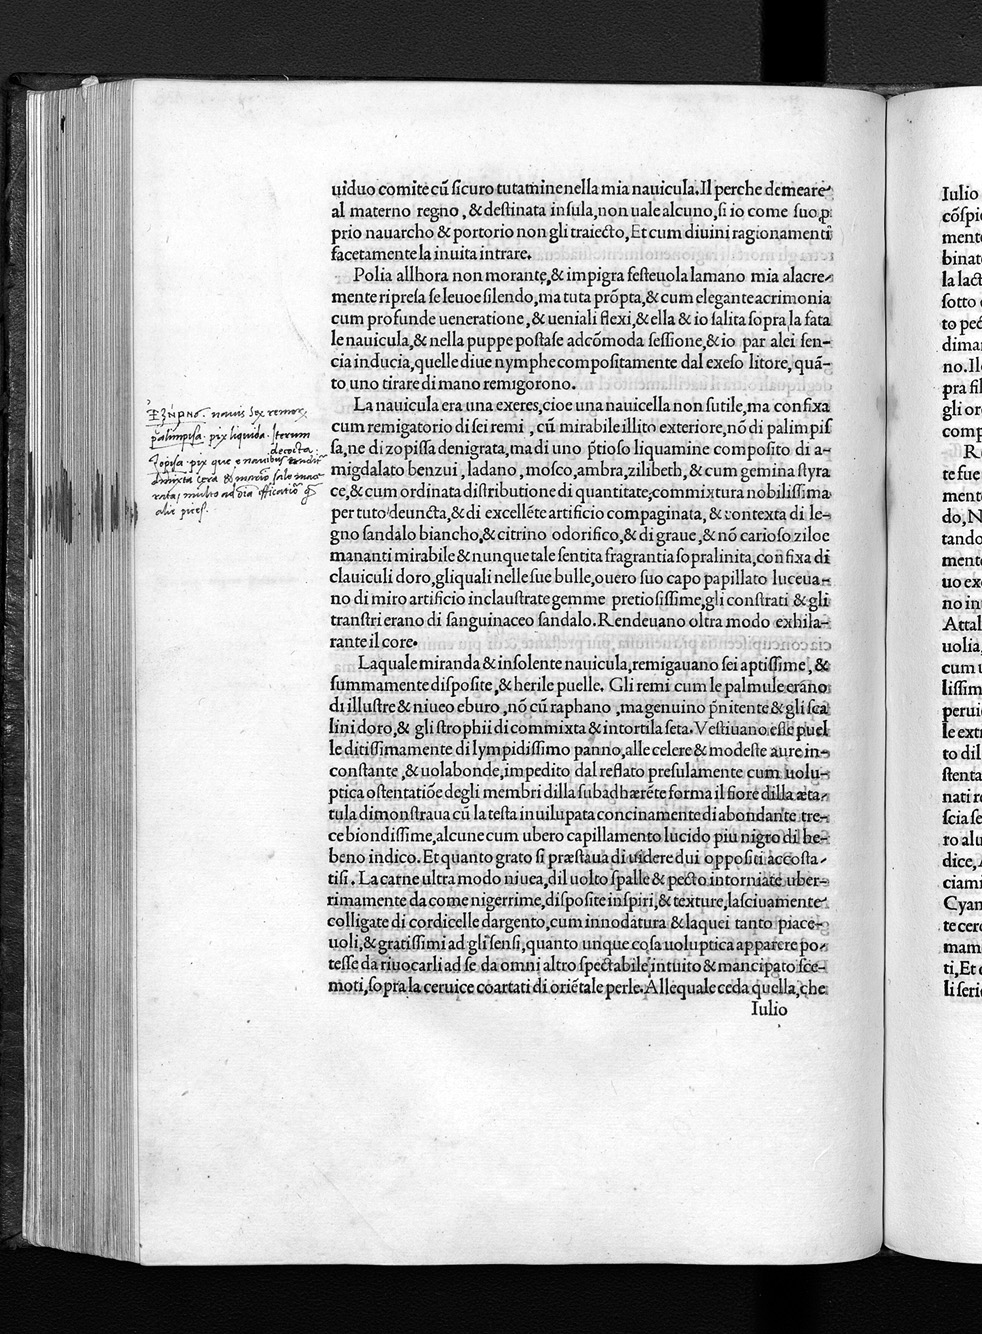 uiduo comite cū ſicuro tutamine nella mia nauicula. Il perche demeare
al materno regno, & deſtinata inſula, non uale alcuno, ſi io come ſuo ꝓ
prio nauarcho & portorio non gli traiecto, Et cum diuini ragionamenti
facetamente la inuita intrare.
Polia allhora non morante, & impigra feſteuola la mano mia alacre-
mente ripreſa ſe leuoe ſilendo, ma tuta prōpta, & cum elegante acrimonia
cum profunde ueneratione, & ueniali flexi, & ella & io ſalita ſopra la fata
le nauicula, & nella puppe poſtaſe adcōmoda ſeſſione, & io par alei ſen-
cia inducia, quelle diue nymphe compoſitamente dal exeſo litore, quā-
to uno tirare di mano remigorono.
La nauicula era una exeres, cioe una nauicella non ſutile, ma confixa
cum remigatorio di ſei remi, cū mirabile illito exteriore, nō di palimpiſ
ſa, ne di zopiſſa denigrata, ma di uno p̄tioſo liquamine compoſito di a-
migdalato benzui, ladano, moſco, ambra, zilibeth, & cum gemina ſtyra
ce, & cum ordinata diſtributione di quantitate, commixtura nobiliſſima
per tuto deuncta, & di excellēte artificio compaginata, & contexta di le-
gno ſandalo biancho, & citrino odorifico, & di graue, & nō carioſo ziloe
mananti mirabile & nunque tale ſentita fragrantia ſopralinita, confixa di
clauiculi doro, gliquali nelle ſue bulle, ouero ſuo capo papillato luceua-
no di miro artificio inclauſtrate gemme pretioſiſſime, gli conſtrati & gli
tranſtri erano di ſanguinaceo ſandalo. Rendeuano oltra modo exhila-
rante il core.
Laquale miranda & inſolente nauicula, remigauano ſei aptiſſime, &
ſummamente diſpoſite, & herile puelle. Gli remi cum le palmule erano
di illuſtre & niueo eburo, nō cū raphano, ma genuino p̄nitente & gli ſca
lini doro, & gli ſtrophii di commixta & intortila ſeta. Veſtiuano eſſe puel
le ditiſſimamente di lympidiſſimo panno, alle celere & modeſte aure in-
conſtante, & uolabonde, impedito dal reflato preſulamente cum uolu-
ptica oſtentatiōe degli membri dilla ſubadhærēte forma il fiore dilla æta-
tula dimonſtraua cū la teſta inuilupata concinamente di abondante tre-
ce biondiſſime, alcune cum ubero capillamento lucido piu nigro di he-
beno indico. Et quanto grato ſi præſtaua di uidere dui oppoſiti accoſta-
tiſi. La carne ultra modo niuea, dil uolto ſpalle & pecto intorniate uber-
rimamente da come nigerrime, diſpoſite inſpiri, & texture, laſciuamente
colligate di cordicelle dargento, cum innodatura & laquei tanto piace-
uoli, & gratiſſimi ad gli ſenſi, quanto unque coſa uoluptica apparere po-
teſſe da riuocarli ad ſe da omni altro ſpectabile intuito & mancipato ſce-
moti, ſopra la ceruice coartati di oriētale perle. Allequale ceda quella, che
Iulio
nauis ſex remor
palimpiſa. pix liquida. Iterum
decocta
Zopiſa. pix que e nauibus